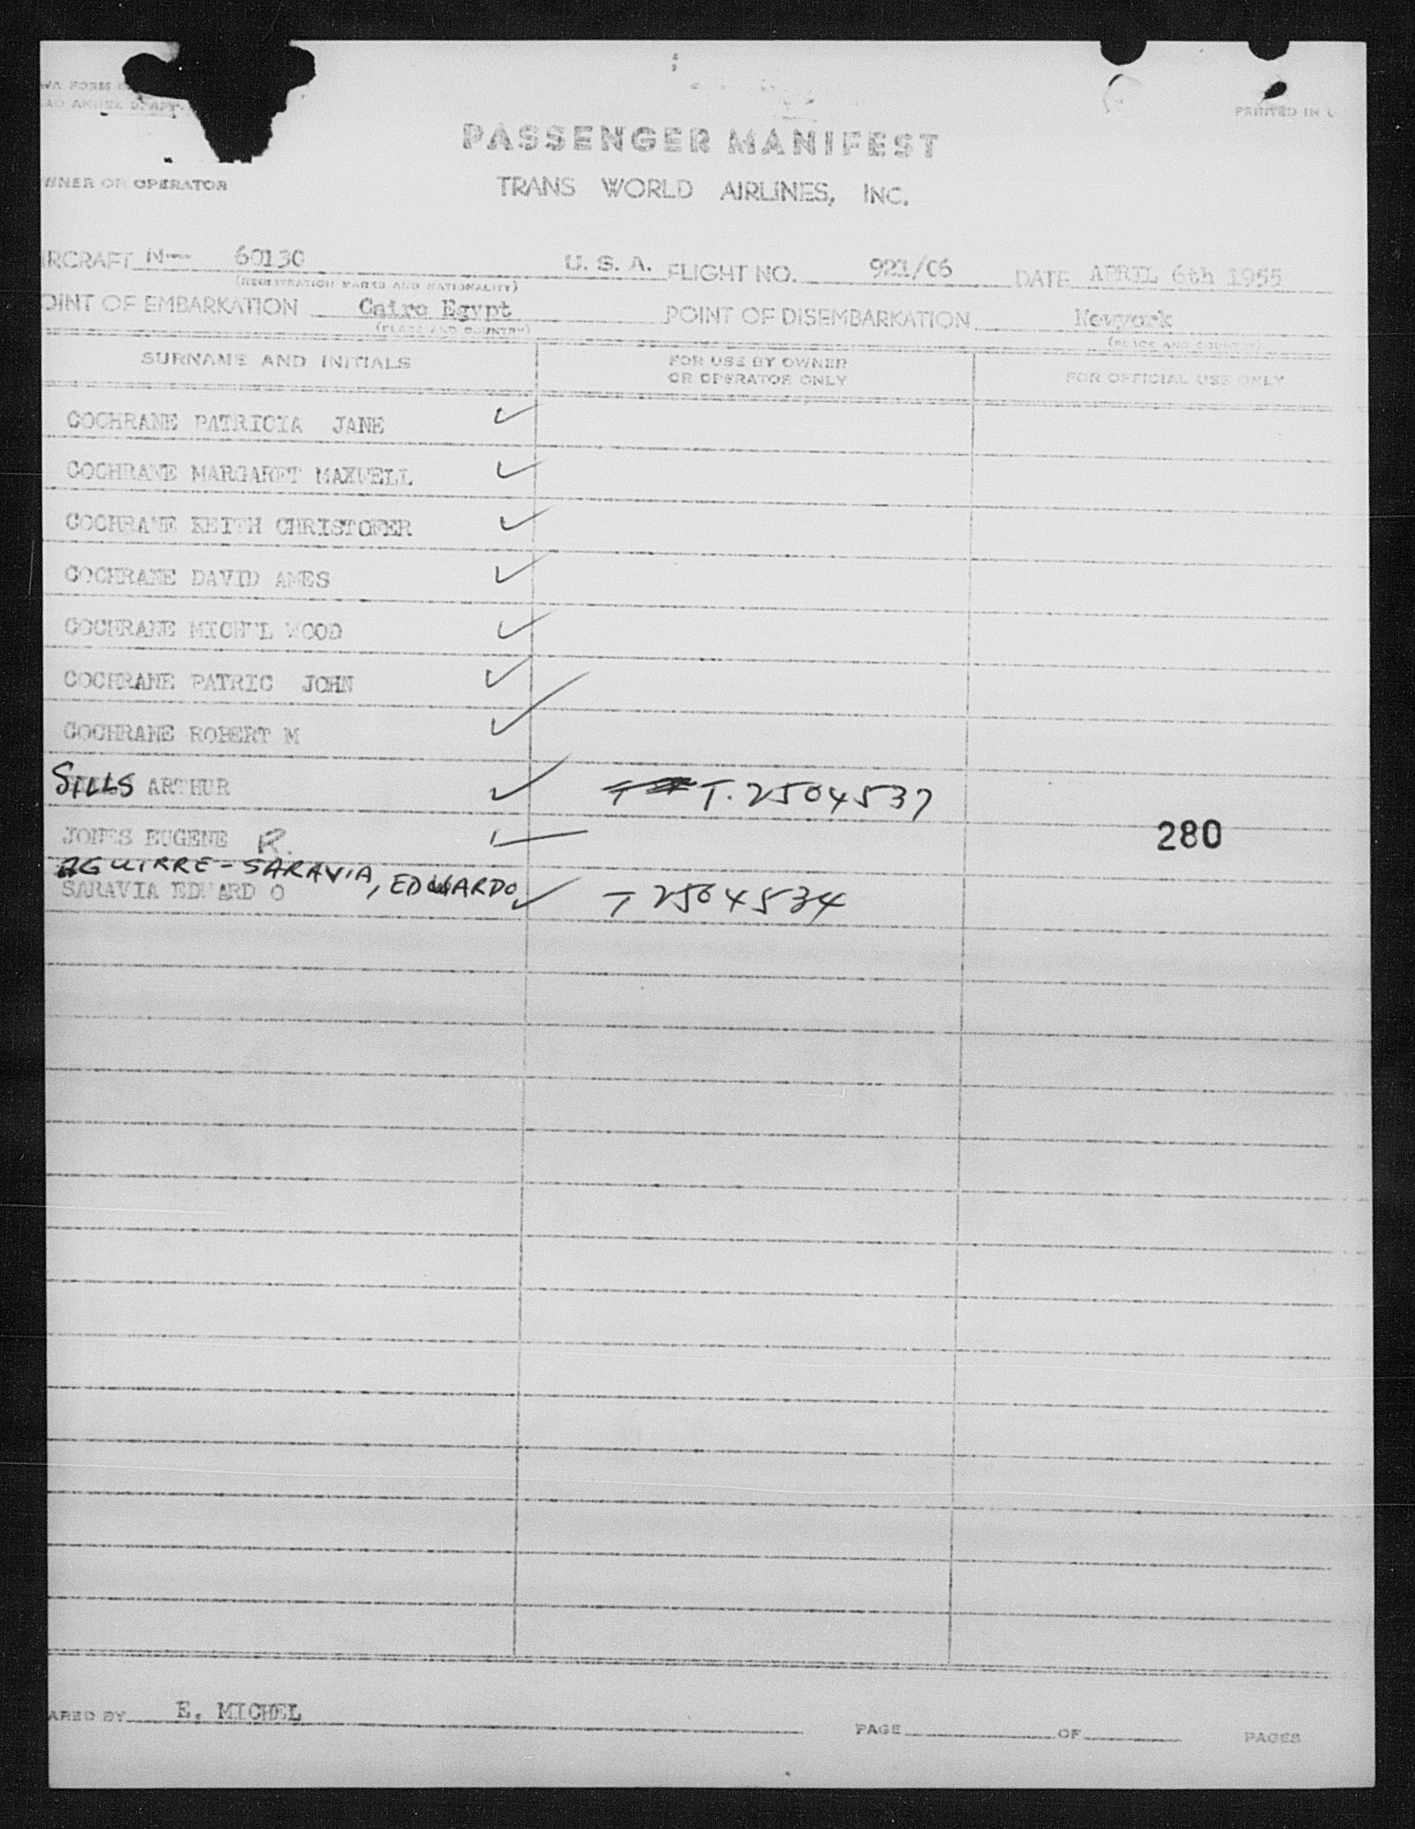 WA FORM
PRINTED IN U
PASSENGER MANIFEST
WNER OR OPERATOR TRANS WORLD AIRLINES, INC.
IRCRAFT N--- 60130 U. S. A. FLIGHT NO. 921/06 DATE APRIL 6th 1955
(REGISTRATION MARKS AND NATIONALITY)
OINT OF EMBARKATION Cairo Egypt POINT OF DISEMBARKATION Newyork
(PLACE AND COUNTRY) (PLACE AND COUNTRY)
SURNAME AND INITIALS FOR USE BY OWNER OR OPERATOR ONLY FOR OFFICIAL USE ONLY
COCHRANE PATRICIA JANE ✓
COCHRANE MARGARET MAXWELL ✓
COCHRANE KEITH CHRISTOFER ✓
COCHRANE DAVID AMES ✓
COCHRANE MICHEL WOOD ✓
COCHRANE PATRIC JOHN ✓
COCHRANE ROBERT M ✓
SILLS ARTHUR ✓ T. 2504537
JONES EUGENE R. ✓ 280
AGUIRRE-SARAVIA, EDUARDO
SARAVIA EDUARD O ✓ T 2504534
ARED BY E. MICHEL PAGE OF PAGES